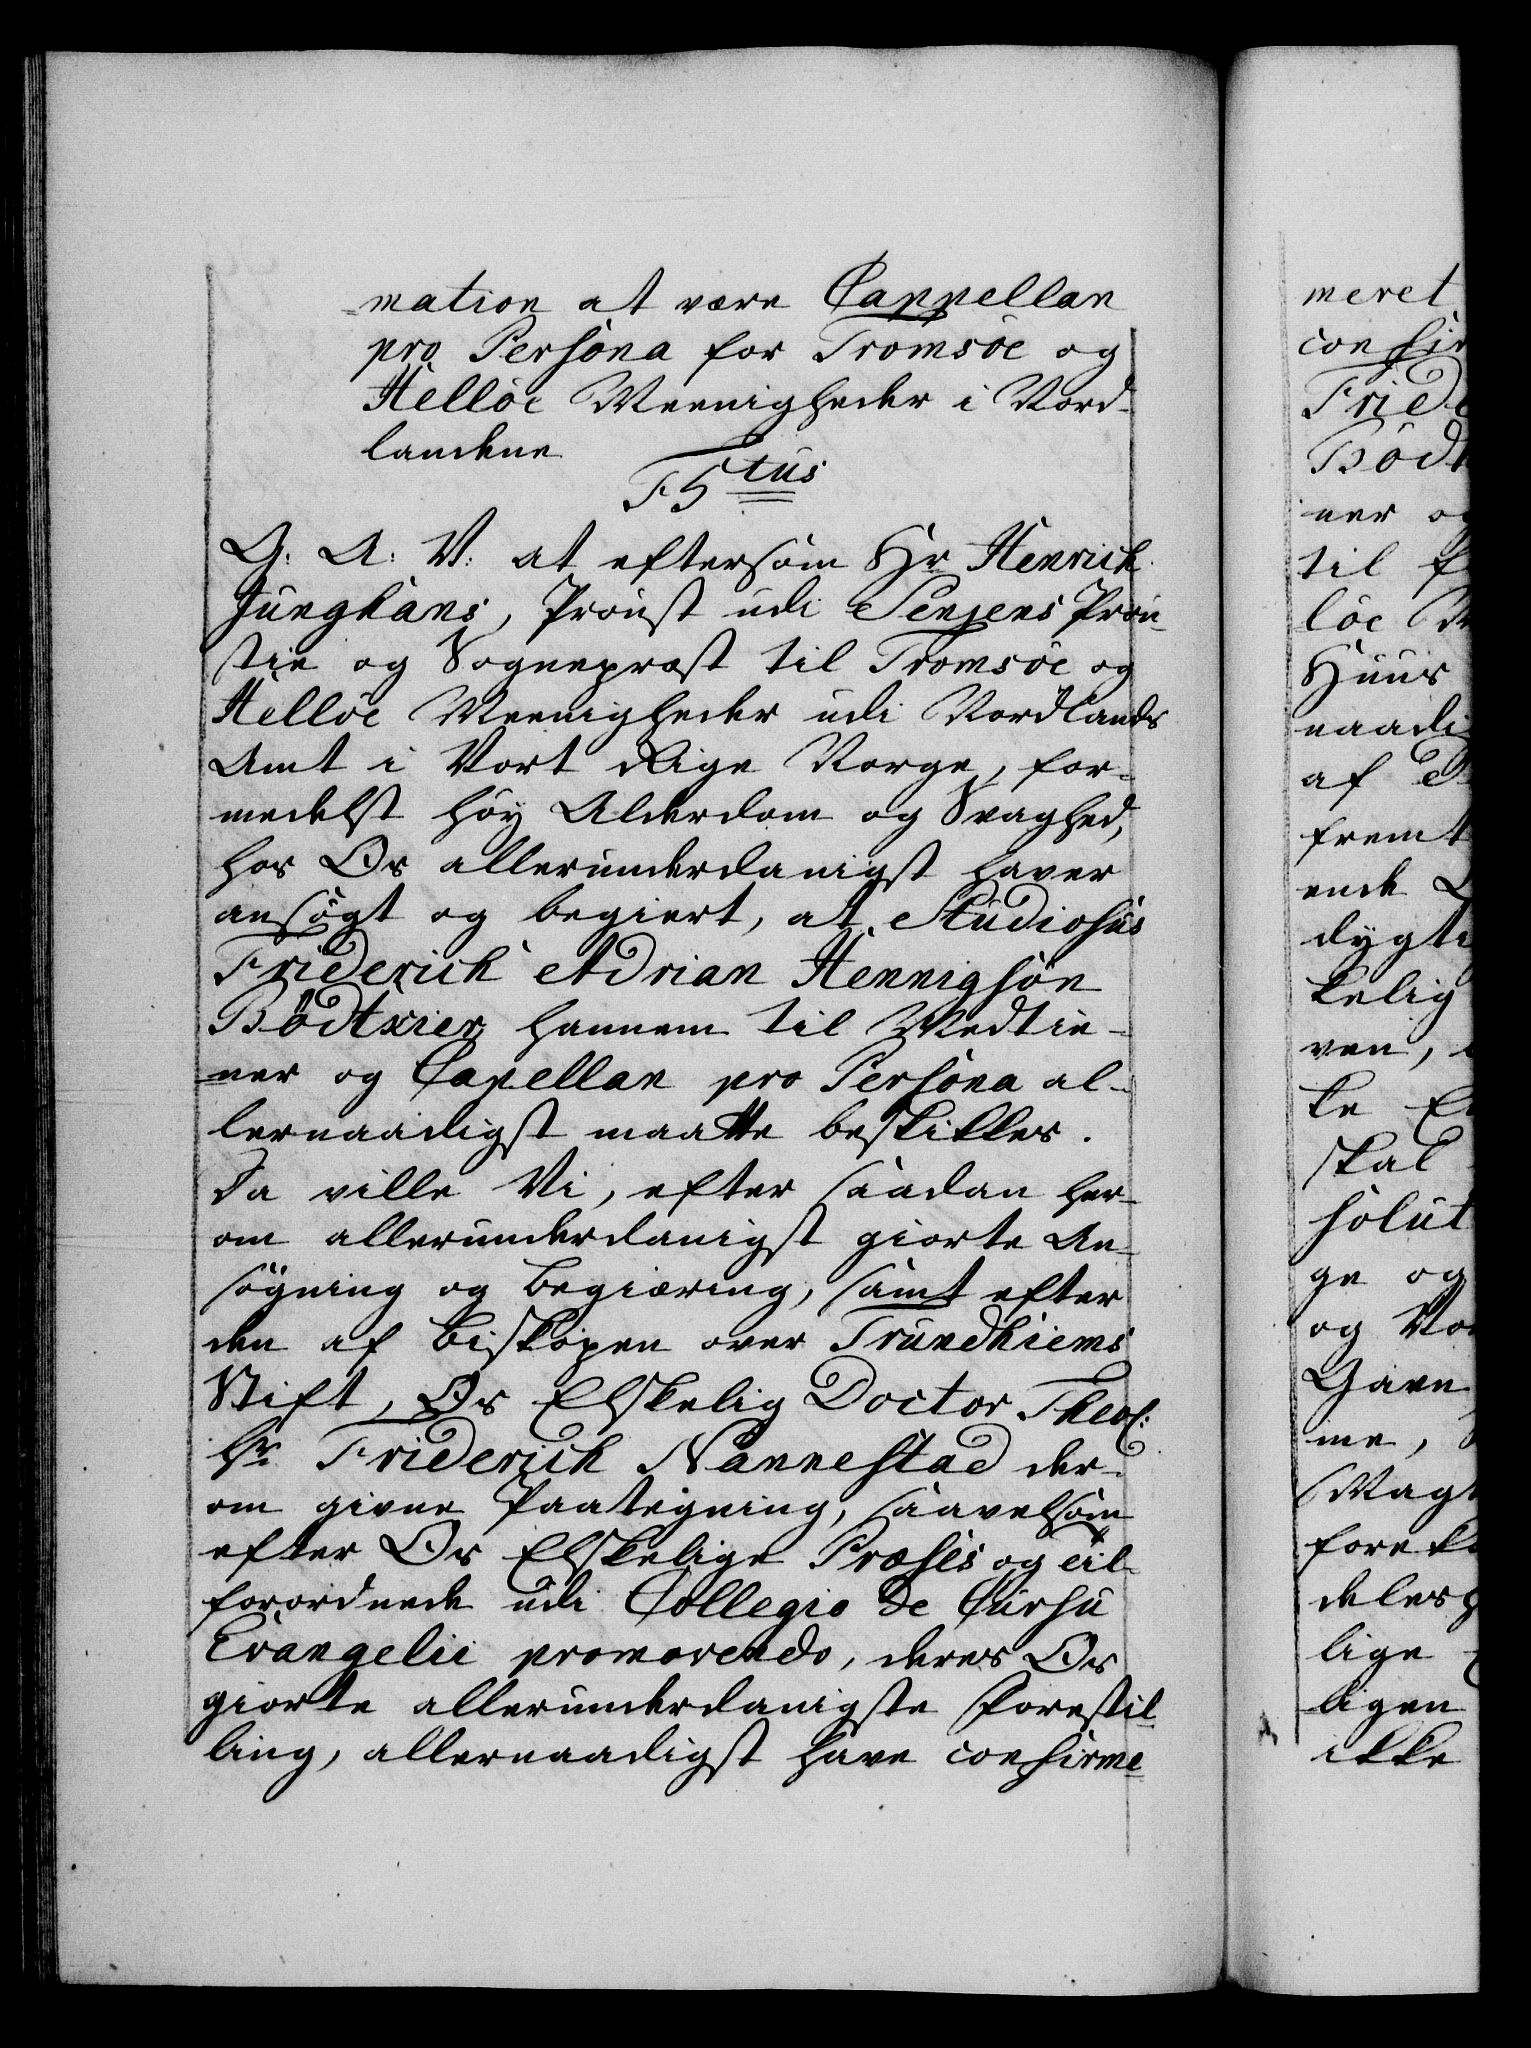 mation at være Cappellan
pro Persona for Tromsöe og
Helløe Meenigheder i Nord-
landene
F5tus
G: A: V: at eftersom Hr Henrich
Junghans, Proust udi Senjens Prou-
stie og Sognepræst til Tromsöe og
Hellöe Meenigheder udi Nordlands
Amt i Vort Rige Norge, for-
medelst höy Alderdom og Svaghed,
hos Os allerunderdanigst haver
ansögt og begiert, at Studiosus
Friderich Adrian Hennigsön
Bödtxier hannem til Medtie-
ner og Capellan pro Persona al-
lernaadigst maatte beskikkes.
Da ville Vi, efter saadan her-
om allerunderdanigst giorte An-
søgning og begiæring, samt efter
den af Biskopen over Trundhiems
Stift, Os Elskelig Doctor Theol:
Hr Friderich Nannestad der-
om givne Paategning, saavelsom
efter Os Elskelige Præses og til-
forordnede udi Collegio de Cursu
Evangelii promovendo, deres Os
giorte allerunderdanigste Forestil-
ling, allernaadigst have confirme-
meret
Frid
Bödt
ner
til
löe
Huus
naadi
af
fremt
ende
dygti
kelig
ven,
ke
skal
solut
ge og
og
Gave
me,
Magt
lige
ligen
ikke